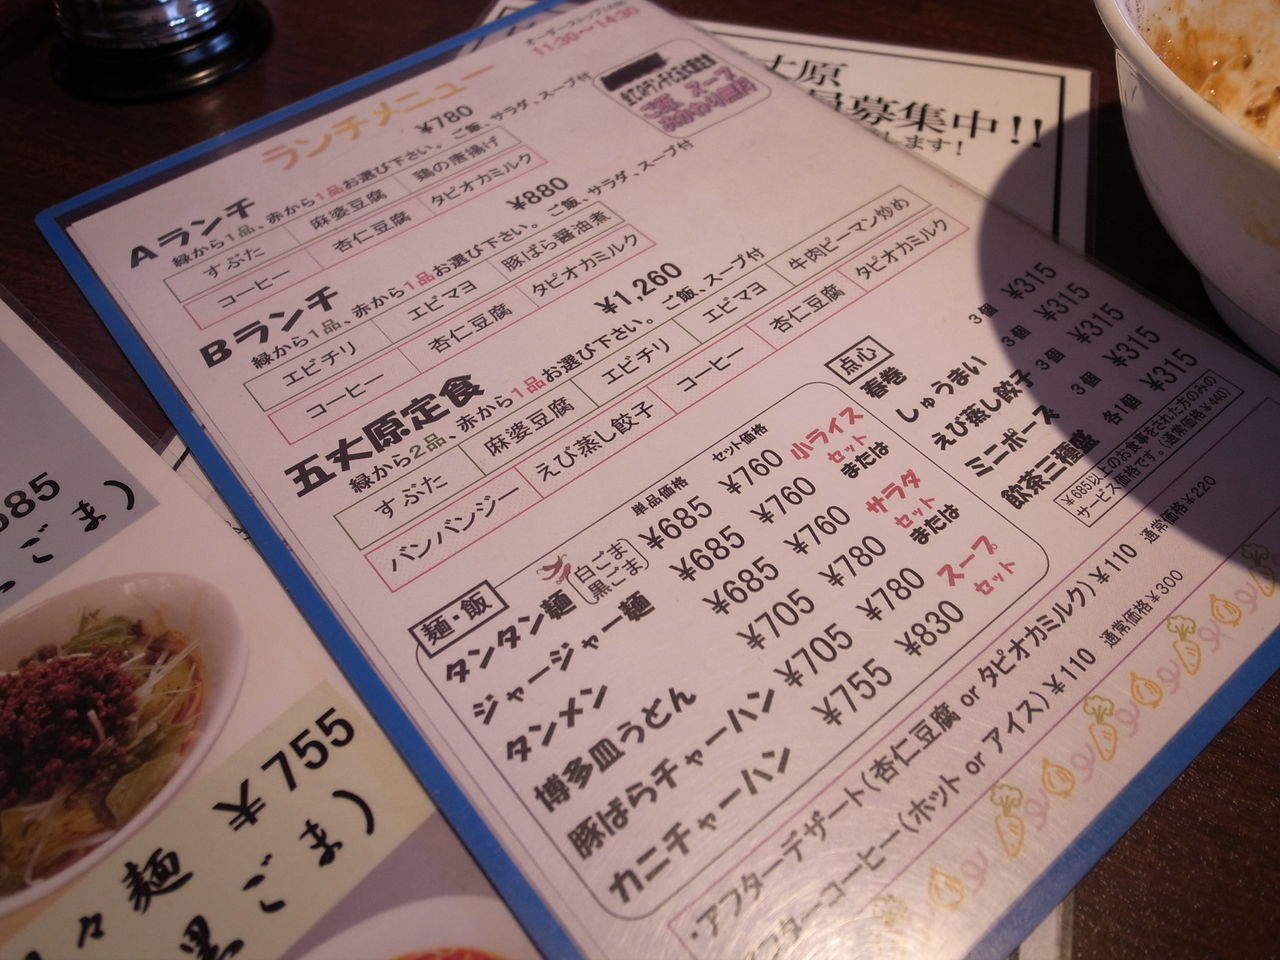 ランチメニュー
オーダーストップ14:30
11:30～14:30
ご飯、スープ
おかわり自由
Aランチ ¥780 ご飯、サラダ、スープ付
緑から1品、赤から1品お選び下さい。
すぶた 麻婆豆腐 鶏の唐揚げ
コーヒー 杏仁豆腐 タピオカミルク
Bランチ ¥880 ご飯、サラダ、スープ付
緑から1品、赤から1品お選び下さい。
エビチリ エビマヨ 豚ばら醤油煮
コーヒー 杏仁豆腐 タピオカミルク
五丈原定食 ¥1,260 ご飯、スープ付
緑から2品、赤から1品お選び下さい。
すぶた 麻婆豆腐 エビチリ エビマヨ 牛肉ピーマン炒め
バンバンジー えび蒸し餃子 コーヒー 杏仁豆腐 タピオカミルク
麺・飯
単品価格 セット価格
タンタン麺 白ごま 黒ごま ¥685 ¥760
ジャージャー麺 ¥685 ¥760
タンメン ¥685 ¥760
博多皿うどん ¥705 ¥780
豚ばらチャーハン ¥705 ¥780
カニチャーハン ¥755 ¥830
小ライス
セット
または
サラダ
セット
または
スープ
セット
点心
春巻 3個 ¥315
しゅうまい 3個 ¥315
えび蒸し餃子 3個 ¥315
ミニポーズ 3個 ¥315
飲茶三種盛 各1個 ¥315
¥685以上のお食事をされた方のみの
サービス価格です。(通常価格¥440)
・アフターデザート(杏仁豆腐 or タピオカミルク) ¥110 通常価格¥220
フターコーヒー(ホット or アイス) ¥110 通常価格¥300
丈原
員募集中!!
します!
685
ごま)
々麺 ¥755
黒ごま)